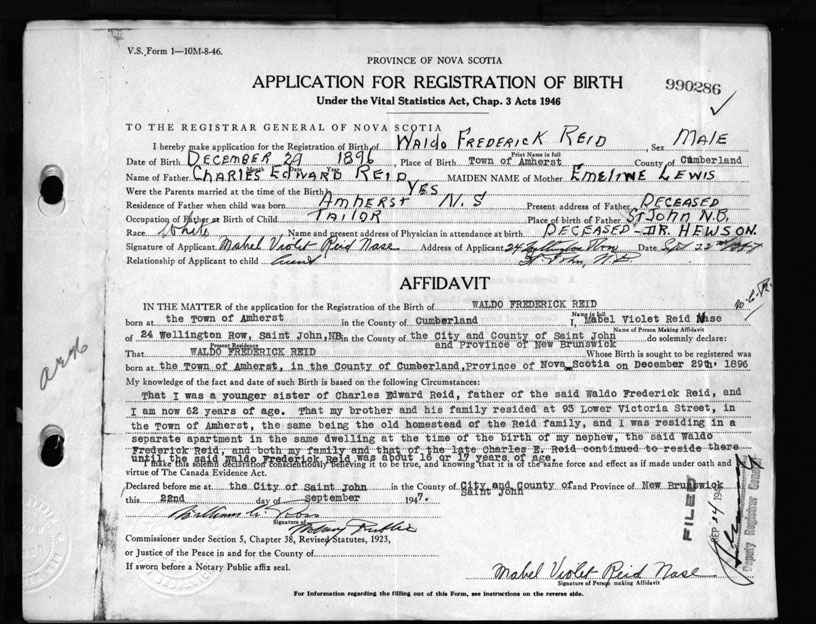 V.S. Form 1—10M-8-46.
PROVINCE OF NOVA SCOTIA
APPLICATION FOR REGISTRATION OF BIRTH
990286
Under the Vital Statistics Act, Chap. 3 Acts 1946
TO THE REGISTRAR GENERAL OF NOVA SCOTIA
I hereby make application for the Registration of Birth of WALDO FREDERICK REID, Sex MALE
Print Name in full
Date of Birth DECEMBER 29 1896, Place of Birth Town of Amherst County of Cumberland
Name of Father CHARLES EDWARD REID MAIDEN NAME of Mother EMELINE LEWIS
Were the Parents married at the time of the Birth YES
Residence of Father when child was born AMHERST N.S Present address of Father DECEASED
Occupation of Father at Birth of Child TAILOR Place of birth of Father ST JOHN N.B.
Race White Name and present address of Physician in attendance at birth DECEASED - DR. HEWSON.
Signature of Applicant Mabel Violet Reid Nase Address of Applicant 24 Wellington Row Date Sept 22nd 1947
Relationship of Applicant to child Aunt St John, N.B.
AFFIDAVIT
IN THE MATTER of the application for the Registration of Birth of WALDO FREDERICK REID
Name in full
born at the Town of Amherst in the County of Cumberland I, Mabel Violet Reid Nase
Name of Person Making Affidavit
of 24 Wellington Row, Saint John, NB in the County of the City and County of Saint John do solemnly declare:
Present Residence
and Province of New Brunswick
That WALDO FREDERICK REID Whose Birth is sought to be registered was
born at the Town of Amherst, in the County of Cumberland, Province of Nova Scotia on December 29th, 1896
My knowledge of the fact and date of such Birth is based on the following Circumstances:
That I was a younger sister of Charles Edward Reid, father of the said Waldo Frederick Reid, and
I am now 62 years of age. That my brother and his family resided at 93 Lower Victoria Street, in
the Town of Amherst, the same being the old homestead of the Reid family, and I was residing in a
separate apartment in the same dwelling at the time of the birth of my nephew, the said Waldo
Frederick Reid, and both my family and that of the late Charles E. Reid continued to reside there
until the said Waldo Frederick Reid was about 16 or 17 years of age.
I make this solemn declaration conscientiously believing it to be true, and knowing that it is of the same force and effect as if made under oath and
virtue of The Canada Evidence Act.
Declared before me at the City of Saint John in the County of City and County of and Province of New Brunswick
Saint John
this 22nd day of September 1947.
Signature of Notary Public
Commissioner under Section 5, Chapter 38, Revised Statutes, 1923,
or Justice of the Peace in and for the County of
If sworn before a Notary Public affix seal.
Mabel Violet Reid Nase
Signature of Person making Affidavit
For Information regarding the filling out of this Form, see instructions on the reverse side.
FILED
SEP 24 194
Deputy Registrar General